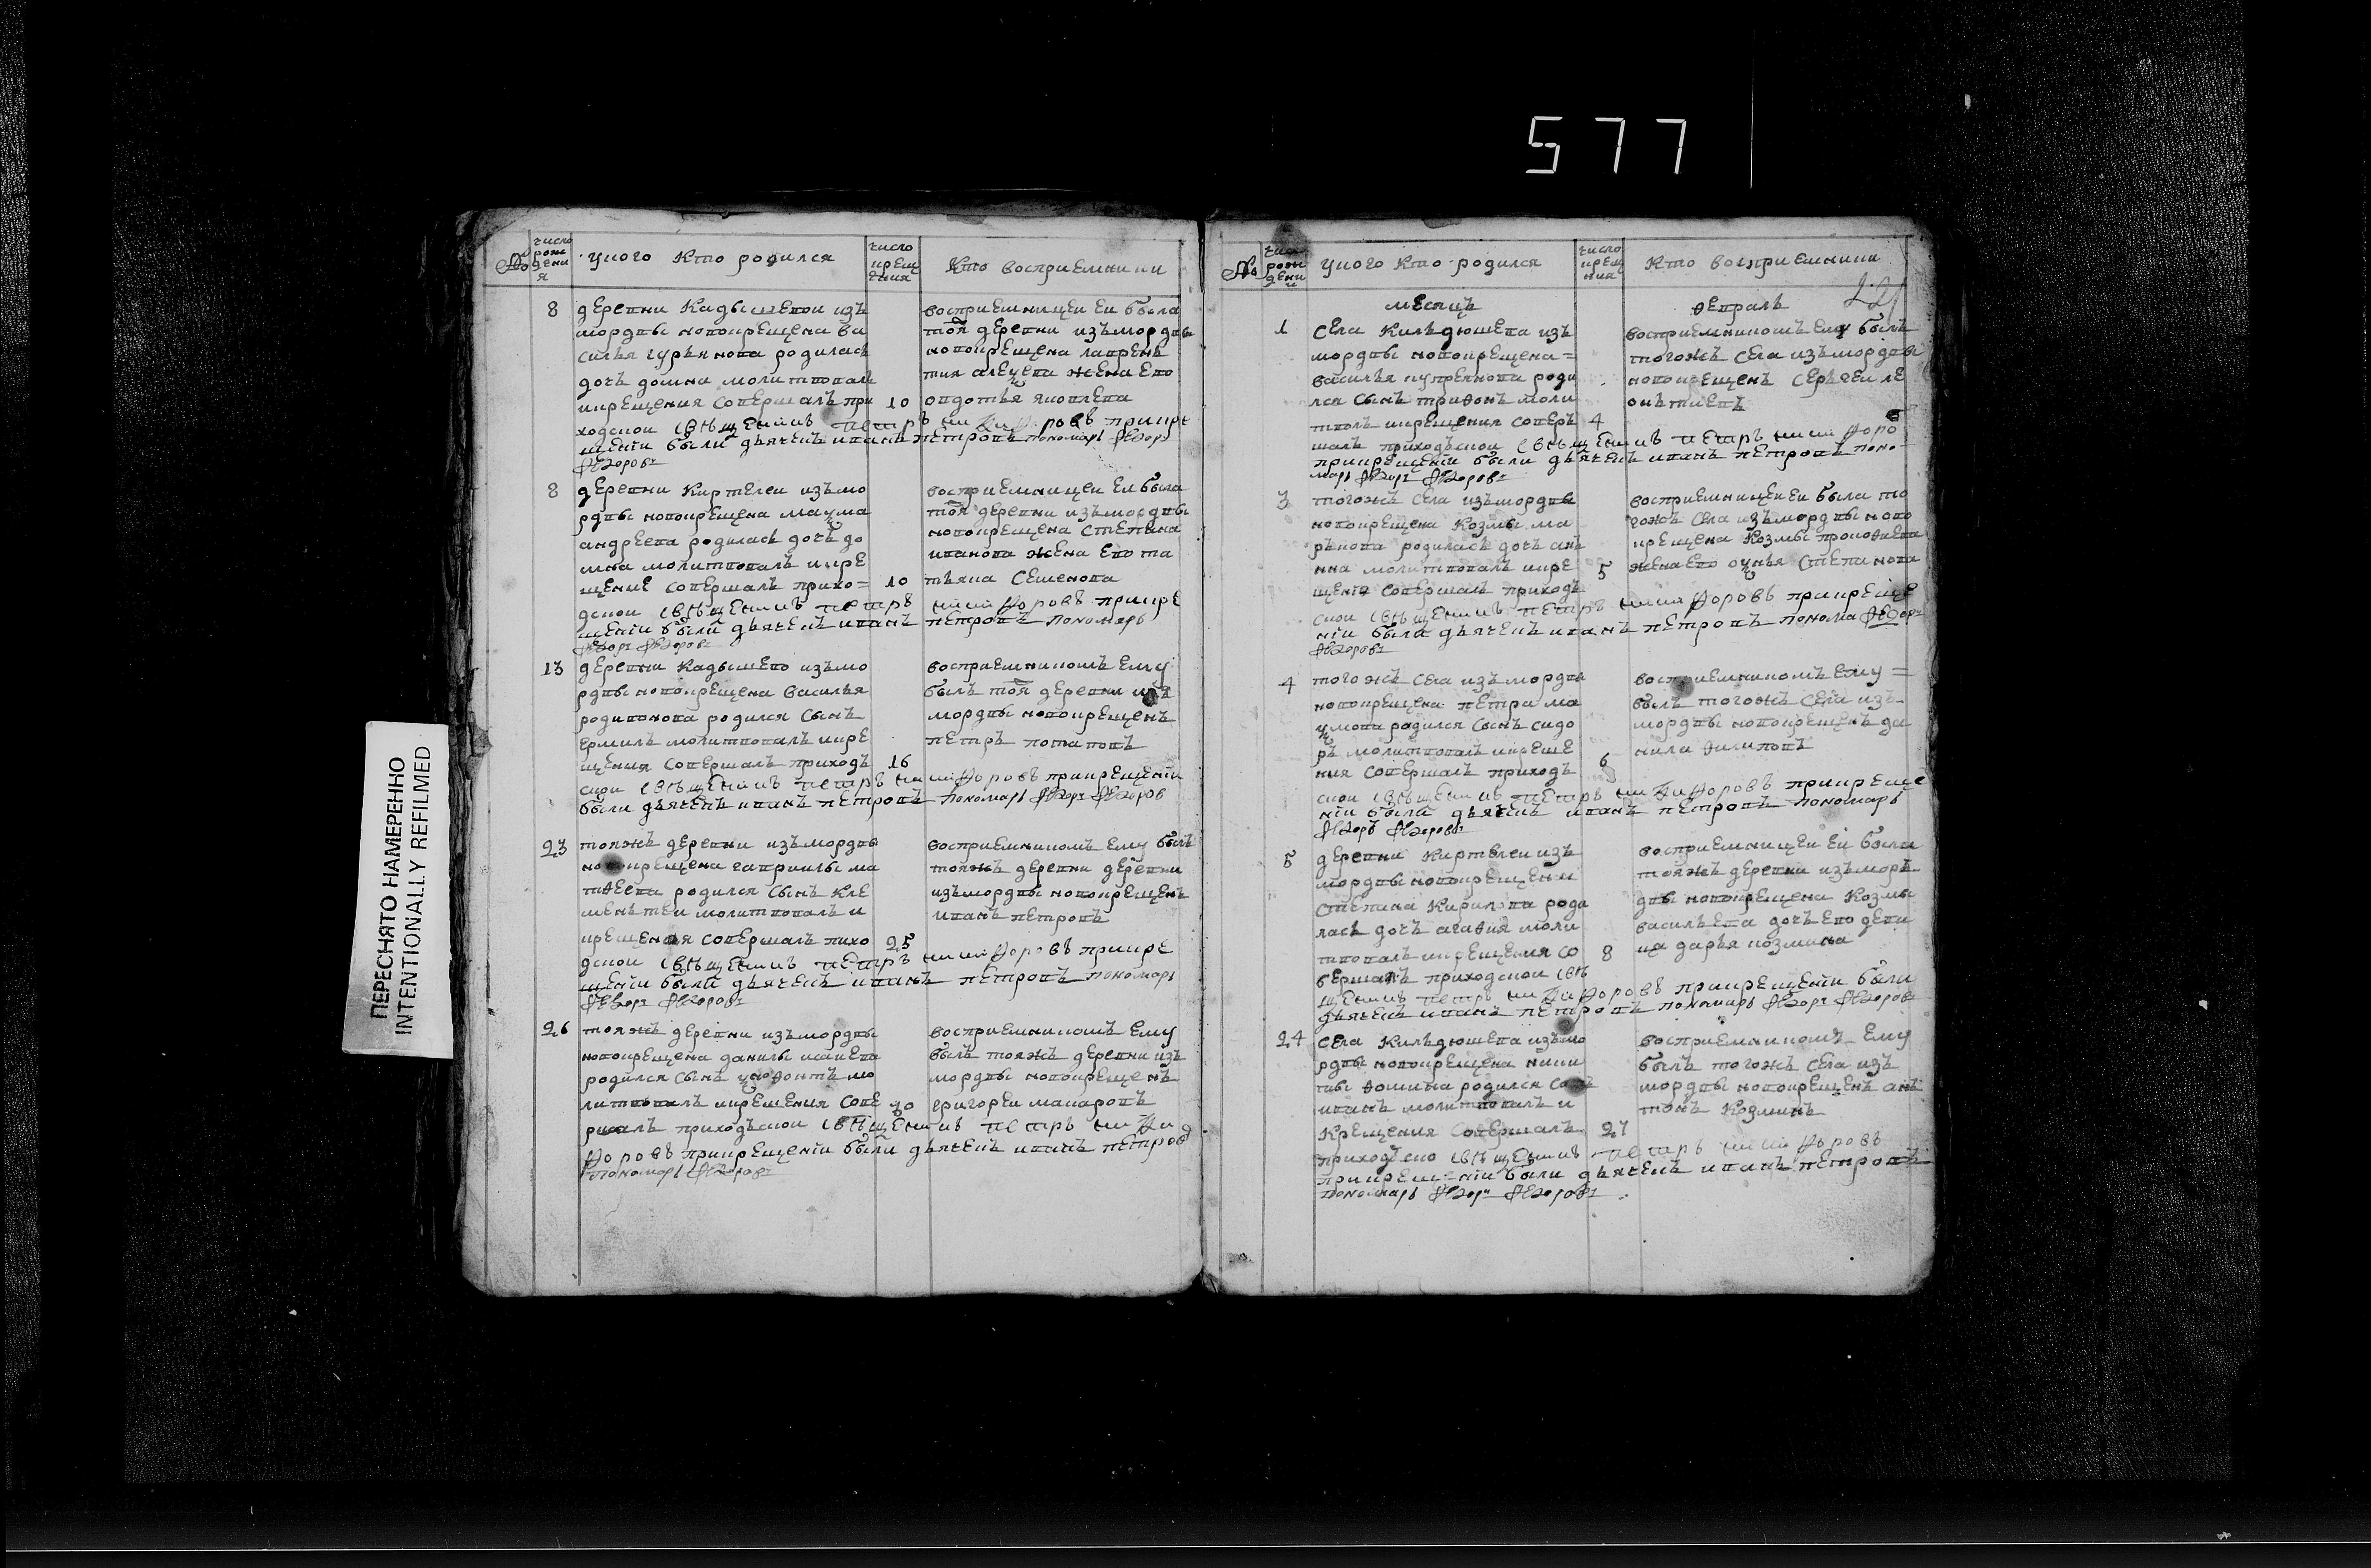 577
ПЕРЕСНЯТО НАМЕРЕННО
INTENTIONALLY REFILMED
№
число рождения
у кого кто родился
число крещения
кто восприемники
8
деревни Кадышевои изъ
мордвы новокрещена Ва
силья гурьянова родилась
дочь домна молитвовалъ
икрещения совершалъ при
10
ходскои священникъ петръ никифоровъ прикре
щеніи были дьячекъ иванъ петровъ пономарь Федоръ
Федоровъ
восприемницеи еи была
тоя деревни изъ мордвы
новокрещена лаврень
тия алеѯева жена ево
овдотья яковлева
8
деревни Киртелеи изъ мо
рдвы новокрещена маѯима
андреева родилась дочь до
мна молитвовалъ икре
щение совершалъ прихо=
10
дскои священникъ петръ никифоровъ прикре
щеніи были дьячекъ иванъ петровъ пономарь
Федоръ Федоровъ
восприемницеи еи была
тоя деревни изъ мордвы
новокрещена Степана
иванова жена ево та
тьяна Семенова
13
деревни Кадышево изъ мо
рдвы новокрещена Василья
родионова родился сынъ
ермилъ молитвовалъ икре
щения совершалъ приходъ
16
скои священникъ петръ никифоровъ прикрещеніи
были дьячекъ иванъ петровъ пономарь Федоръ Федоров
восприемникомъ ему
былъ тоя деревни изъ
мордвы новокрещенъ
петръ потаповъ
23
тояжъ деревни изъ мордвы
новокрещена гаврилы ма
твеева родился сынъ кле
меньтеи молитвовалъ и
крещения совершалъ пихо
25
дскои священникъ петръ никифоровъ прикре
щеніи были дьячекъ иванъ петровъ пономарь
Федоръ Федоровъ
восприемникомъ ему былъ
тояжъ деревни деревни
изъ мордвы новокрещенъ
иванъ петровъ
26
тояжъ деревни изъ мордвы
новокрещена данилы исаиева
родился сынъ ѯнофонтъ мо
литвовалъ икрещения сове
30
ршалъ приходъскои священникъ петръ ники
форовъ прикрещеніи были дьячекъ иванъ петров
пономарь Федоровъ
восприемникомъ ему
былъ тояжъ деревни изъ
мордвы новокрещенъ
григореи макаровъ
№
число рождени
у кого кто родился
число крещ ния
кто восприемники
месяцъ
февраль
1
Села Кильдюшева изъ
мордвы новокрещена=
василья купреянова роди
лся сынъ трифонъ моли
твовалъ икрещения совер
4
шалъ приходьскои священникъ петръ никифоро
прикрещеніи были дьячекъ иванъ петровъ поно
марь Федоръ Федоровъ
восприемникомъ ему былъ
тогожъ села изъ мордвы
новокрещенъ Серьгеи ле
оньтиевъ
3
тогожъ села изъ мордвы
новокрещена Козмы ма
ръкова родилась дочь анъ
нна молитвовалъ икре
5
щения совершалъ приходъ
скои священникъ петръ никифоровъ прикреще
ніи были дьячекъ иванъ петровъ понома Федоръ
Федоровъ
восприемницеи еи была то
гожъ села изъ мордвы ново
крещена Козмы прокофиева
жена ево оѯинья Степанова
4
тогожъ села изъ мордвы
новокрещена петра ма
ѯимова родился сынъ сидо
ръ молитвовалъ икреще
6
ния совершалъ приходъ
скои священникъ петръ никифоровъ прикреще
ніи были дьячекъ иванъ петровъ пономарь
Федоръ Федоровъ
восприемникомъ ему=
былъ тогожъ села изъ
мордвы новокрещенъ да
нила филиповъ
5
деревни Киртелеи изъ
мордвы новокрещени
Степана Кирилова роди
лась дочь агафия моли
твовалъ икрещения со
8
вершалъ приходскои свя
щенникъ петръ никифоровъ прикрещеніи были
дьячекъ иванъ петровъ пономарь Федоръ Федоровъ
восприемницеи еи была
тояжъ деревни изъ моръ
двы новокрещена Козмы
васильева дочь ево деви
ца дарья козмина
24
Села Кильдюшева изъ мо
рдвы новокрещена ники
ты фомина родился сынъ
иванъ молитвовалъ и
Крещения совершалъ
27
приходъско священникъ петръ никифоровъ
прикрещеніи были дьячекъ иванъ петровъ
пономарь Федоръ Федоровъ
восприемникомъ ему
былъ тогожъ села изъ
мордвы новокрещенъ анъ
тонъ Козминъ